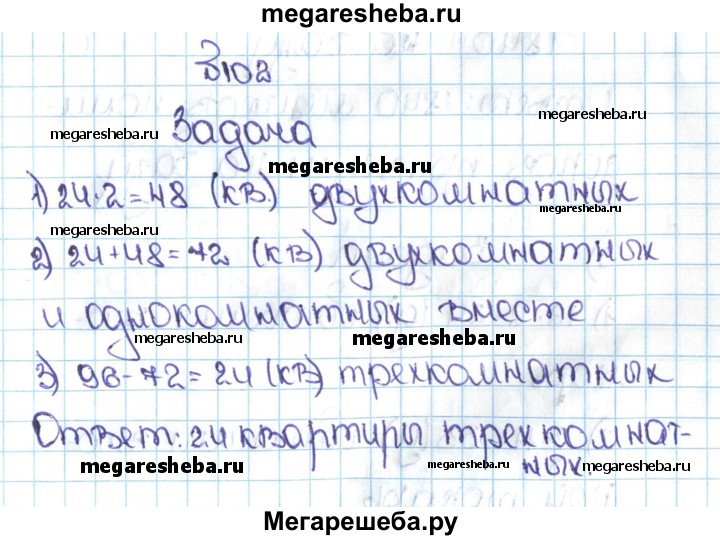 megaresheba.ru
№102
megaresheba.ru Задача megaresheba.ru
megaresheba.ru
1) 24·2=48 (кв.) двухкомнатных
megaresheba.ru megaresheba.ru
2) 24+48=72 (кв) двухкомнатных
и однокомнатных вместе
megaresheba.ru megaresheba.ru megaresheba.ru
3) 96-72=24 (кв) трехкомнатных
Ответ: 24 квартиры трехкомнат-
ных.
megaresheba.ru megaresheba.ru megaresheba.ru
Мегарешеба.ру